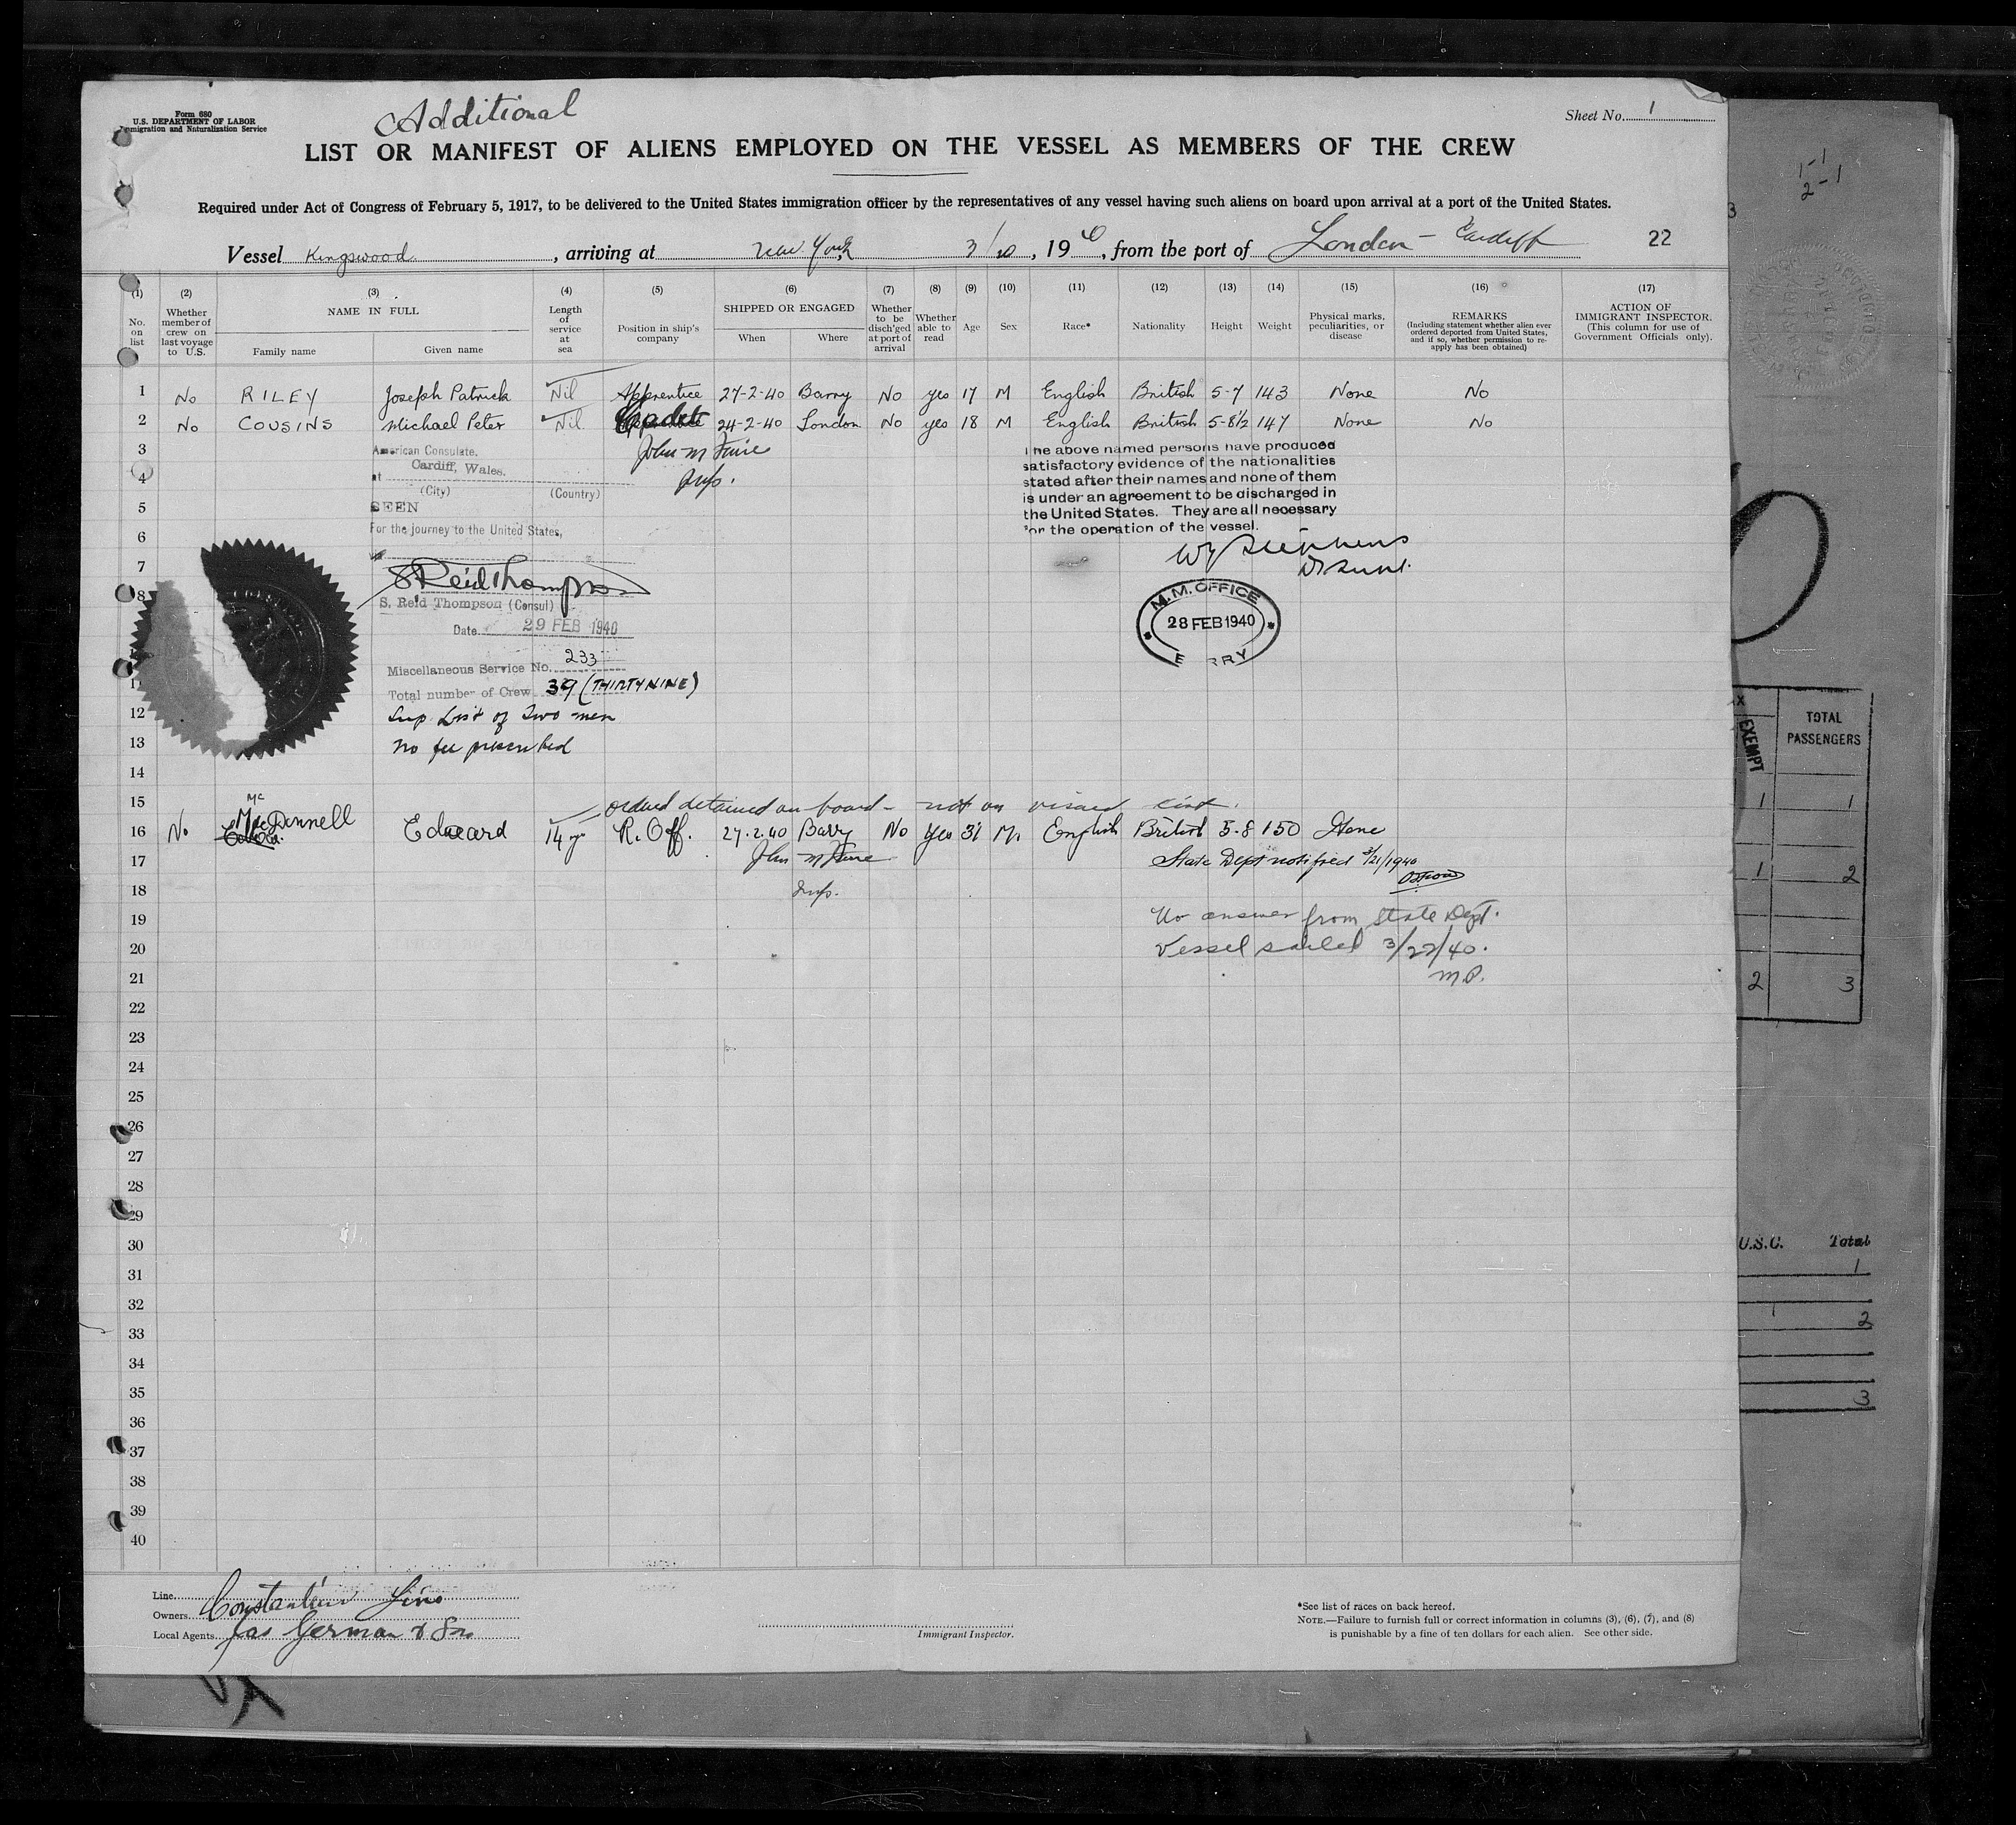 Form 680
U.S. DEPARTMENT OF LABOR
Immigration and Naturalization Service
Additional
Sheet No. 1
LIST OR MANIFEST OF ALIENS EMPLOYED ON THE VESSEL AS MEMBERS OF THE CREW
Required under Act of Congress of February 5, 1917, to be delivered to the United States immigration officer by the representatives of any vessel having such aliens on board upon arrival at a port of the United States.
Vessel Kingswood, arriving at New York 3/20, 1940, from the port of London - Cardiff 22
(1) No. on list
(2) Whether member of crew on last voyage to U.S.
(3) NAME IN FULL Family name Given name
(4) Length of service at sea
(5) Position in ship's company
(6) SHIPPED OR ENGAGED When Where
(7) Whether to be disch'ged at port of arrival
(8) Whether able to read
(9) Age
(10) Sex
(11) Race*
(12) Nationality
(13) Height
(14) Weight
(15) Physical marks, peculiarities, or disease
(16) REMARKS (Including statement whether alien ever ordered deported from United States, and if so, whether permission to re-apply has been obtained)
(17) ACTION OF IMMIGRANT INSPECTOR. (This column for use of Government Officials only).
1 No RILEY Joseph Patrick Nil Apprentice 27-2-40 Barry No yes 17 M English British 5-7 143 None No
2 No COUSINS Michael Peter Nil Cadet 24-2-40 London No yes 18 M English British 5-8½ 147 None No
3
4
5
6
7
8
American Consulate.
at Cardiff, Wales.
(City) (Country)
SEEN
For the journey to the United States,
S Reid Thompson
S. Reid Thompson (Consul)
Date 29 FEB 1940
Miscellaneous Service No. 233
Total number of Crew 39 (THIRTYNINE)
Sup List of Two men
No fee prescribed
Insp.
The above named persons have produced
satisfactory evidence of the nationalities
stated after their names and none of them
is under an agreement to be discharged in
the United States. They are all necessary
for the operation of the vessel.
Stephens
M.M. OFFICE
28 FEB 1940
BARRY
12
13
14
15 ordered detained on board - not on visaed list.
16 No McDonnell Edward 14 yr R. Off. 27.2.40 Barry No Yes 31 M. English British 5-8 150 None
17 State Dept notified 3/21/1940
18 Insp.
19 No answer from State Dept.
20 Vessel sailed 3/22/40.
21 M.P.
22
23
24
25
26
27
28
29
30
31
32
33
34
35
36
37
38
39
40
Line
Owners Constantine Line
Local Agents Jas German & Sons
Immigrant Inspector.
*See list of races on back hereof.
NOTE.—Failure to furnish full or correct information in columns (3), (6), (7), and (8)
is punishable by a fine of ten dollars for each alien. See other side.
EXEMPT
TOTAL PASSENGERS
1 1
1 2
2 3
U.S.C. Total
1
2
3